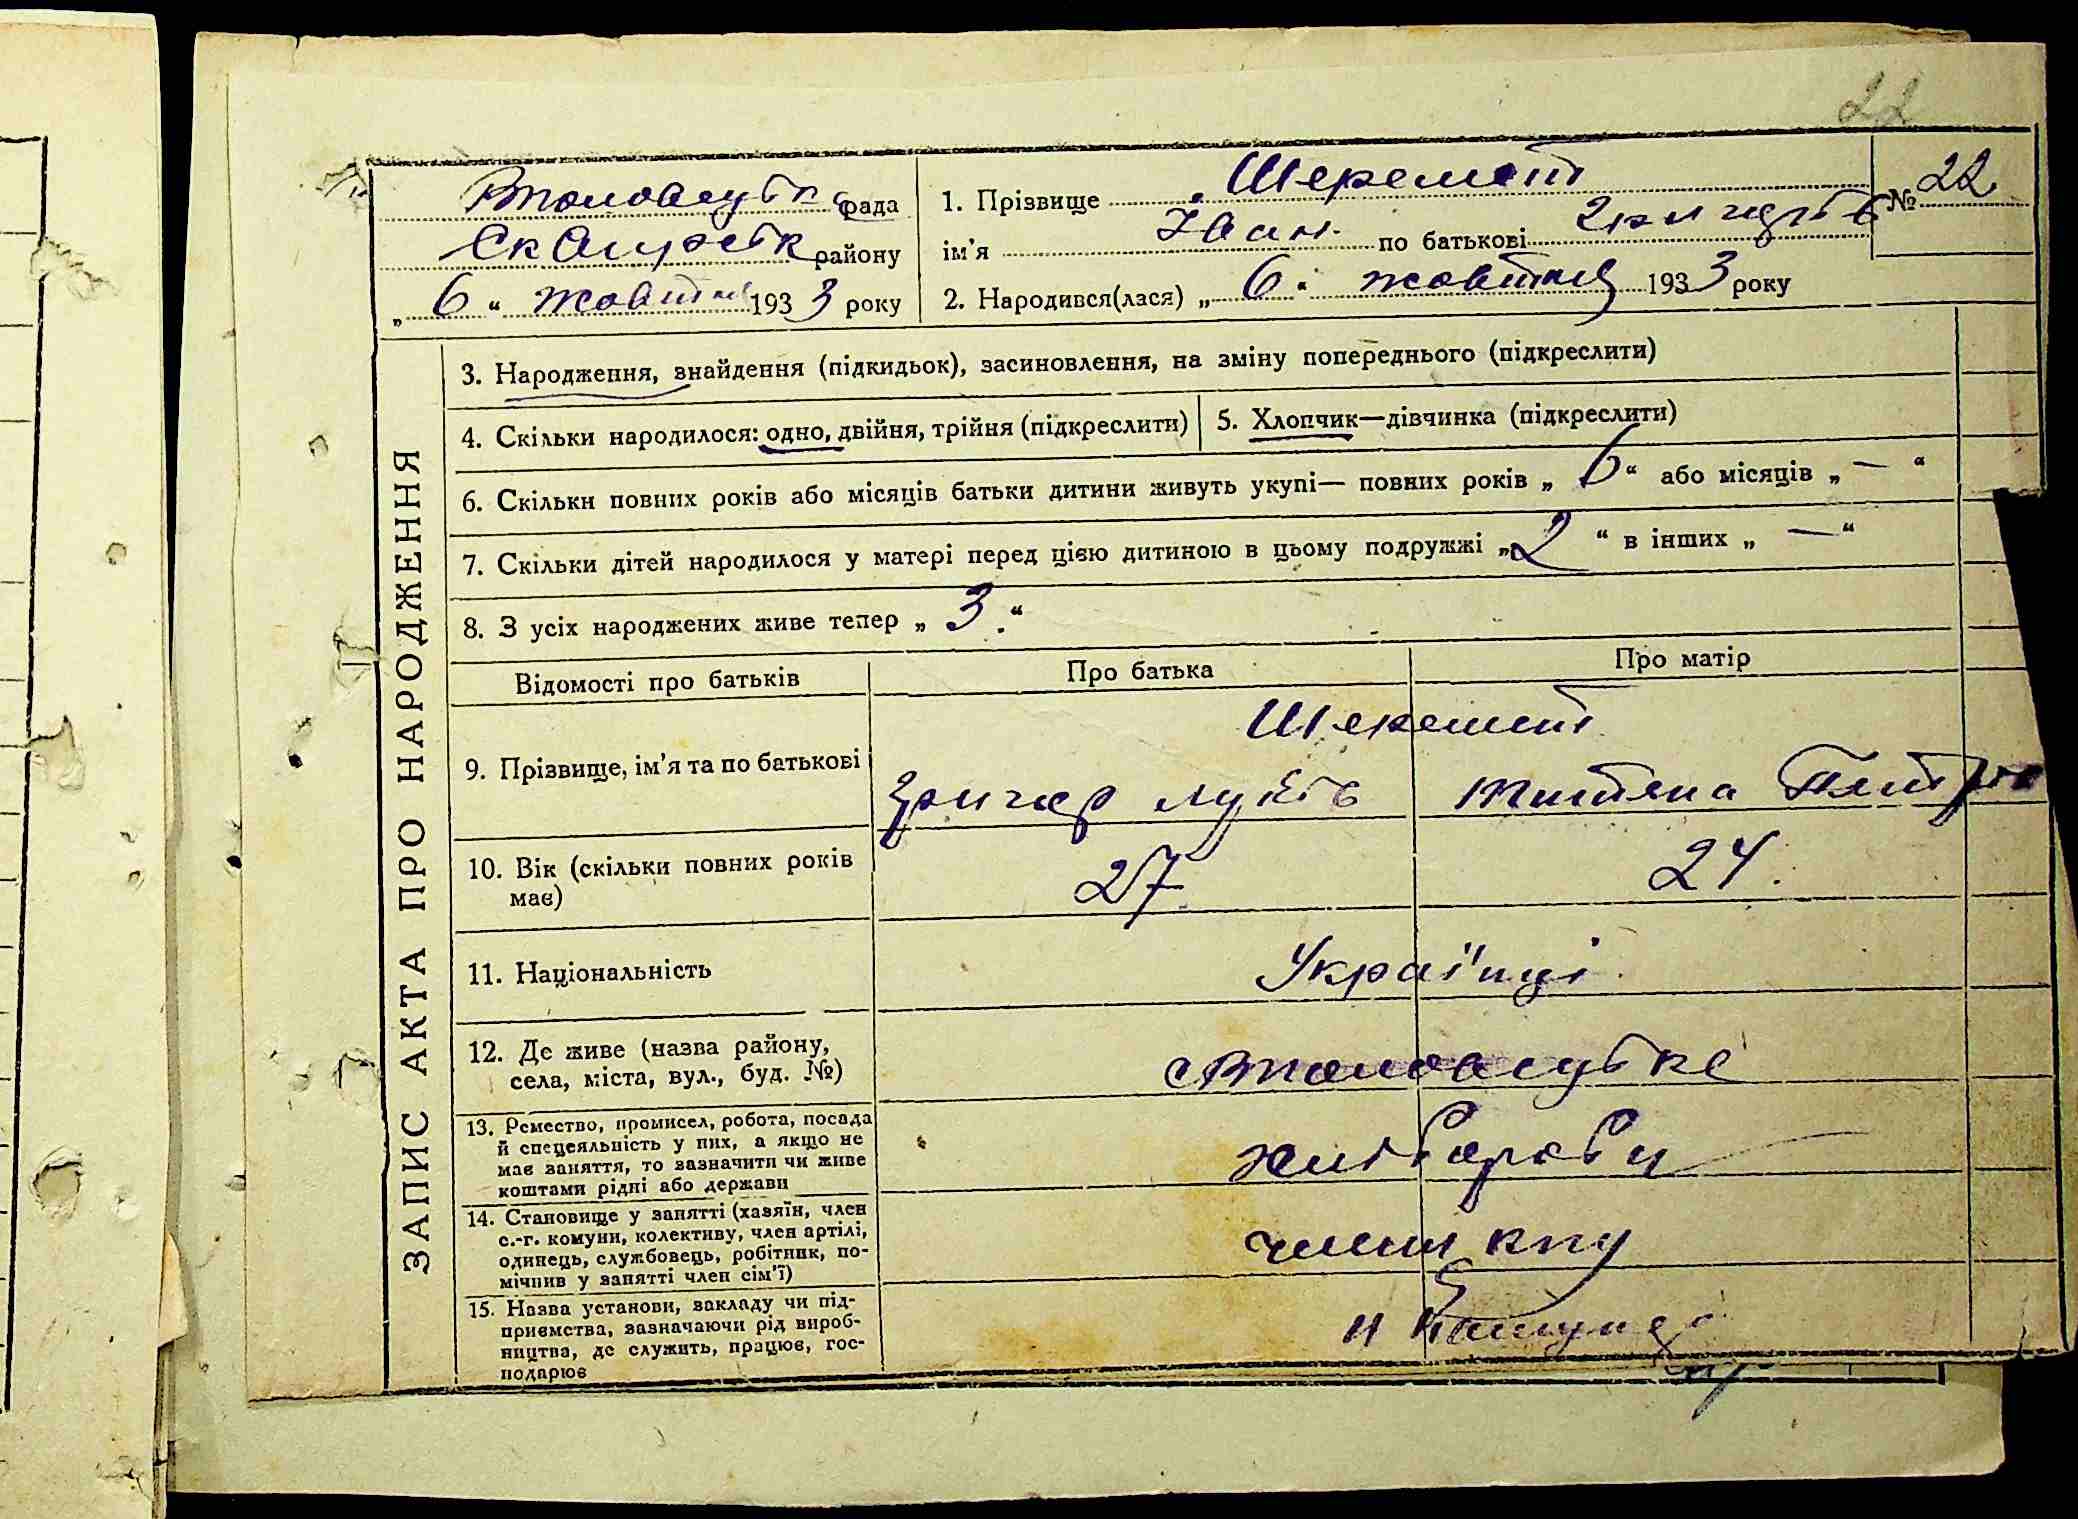 22
рада
району
„ 6 “ жовтня 1933 року
1. Прізвище Шеремет
ім'я Іван по батькові
2. Народився(лася) „ 6 “ жовтня 1933 року
№ 22
ЗАПИС АКТА ПРО НАРОДЖЕННЯ
3. Народження, знайдення (підкидьок), засиновлення, на зміну попереднього (підкреслити)
4. Скільки народилося: одно, двійня, трійня (підкреслити)
5. Хлопчик—дівчинка (підкреслити)
6. Скільки повних років або місяців батьки дитини живуть укупі— повних років „ 6 “ або місяців „ — “
7. Скільки дітей народилося у матері перед цією дитиною в цьому подружжі „ 2 “ в інших „ — “
8. З усіх народжених живе тепер „ 3 “
Відомості про батьків
Про батька
Про матір
9. Прізвище, ім'я та по батькові
Шеремет
10. Вік (скільки повних років
має)
27
24
11. Національність
Українці
12. Де живе (назва району,
села, міста, вул., буд. №)
13. Ремество, промисел, робота, посада
й спецеяльність у них, а якщо не
має заняття, то зазначити чи живе
коштами рідні або держави
хлібороби
14. Становище у занятті (хазяїн, член
с.-г. комуни, колективу, член артілі,
одинець, службовець, робітник, по-
мічнив у занятті член сім'ї)
15. Назва установи, закладу чи під-
приємства, зазначаючи рід вироб-
ництва, де служить, працює, гос-
подарює